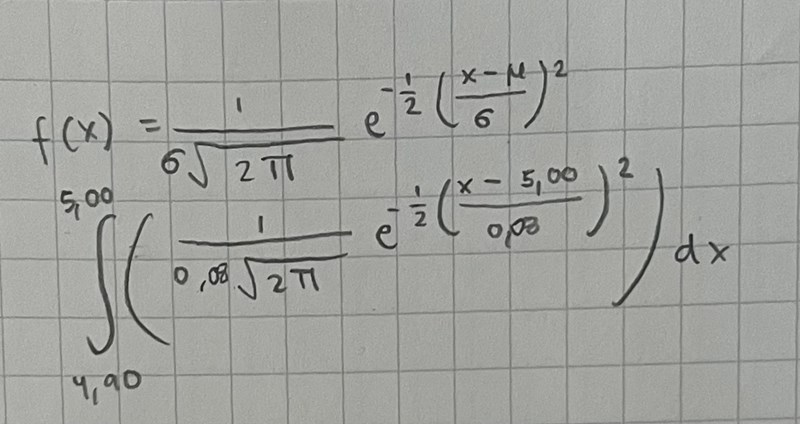 f(x) = 1/(σ√(2π)) e^(-1/2 ((x-μ)/σ)^2)
∫_{4,90}^{5,00} (1/(0,08√(2π)) e^(-1/2 ((x-5,00)/0,08)^2)) dx